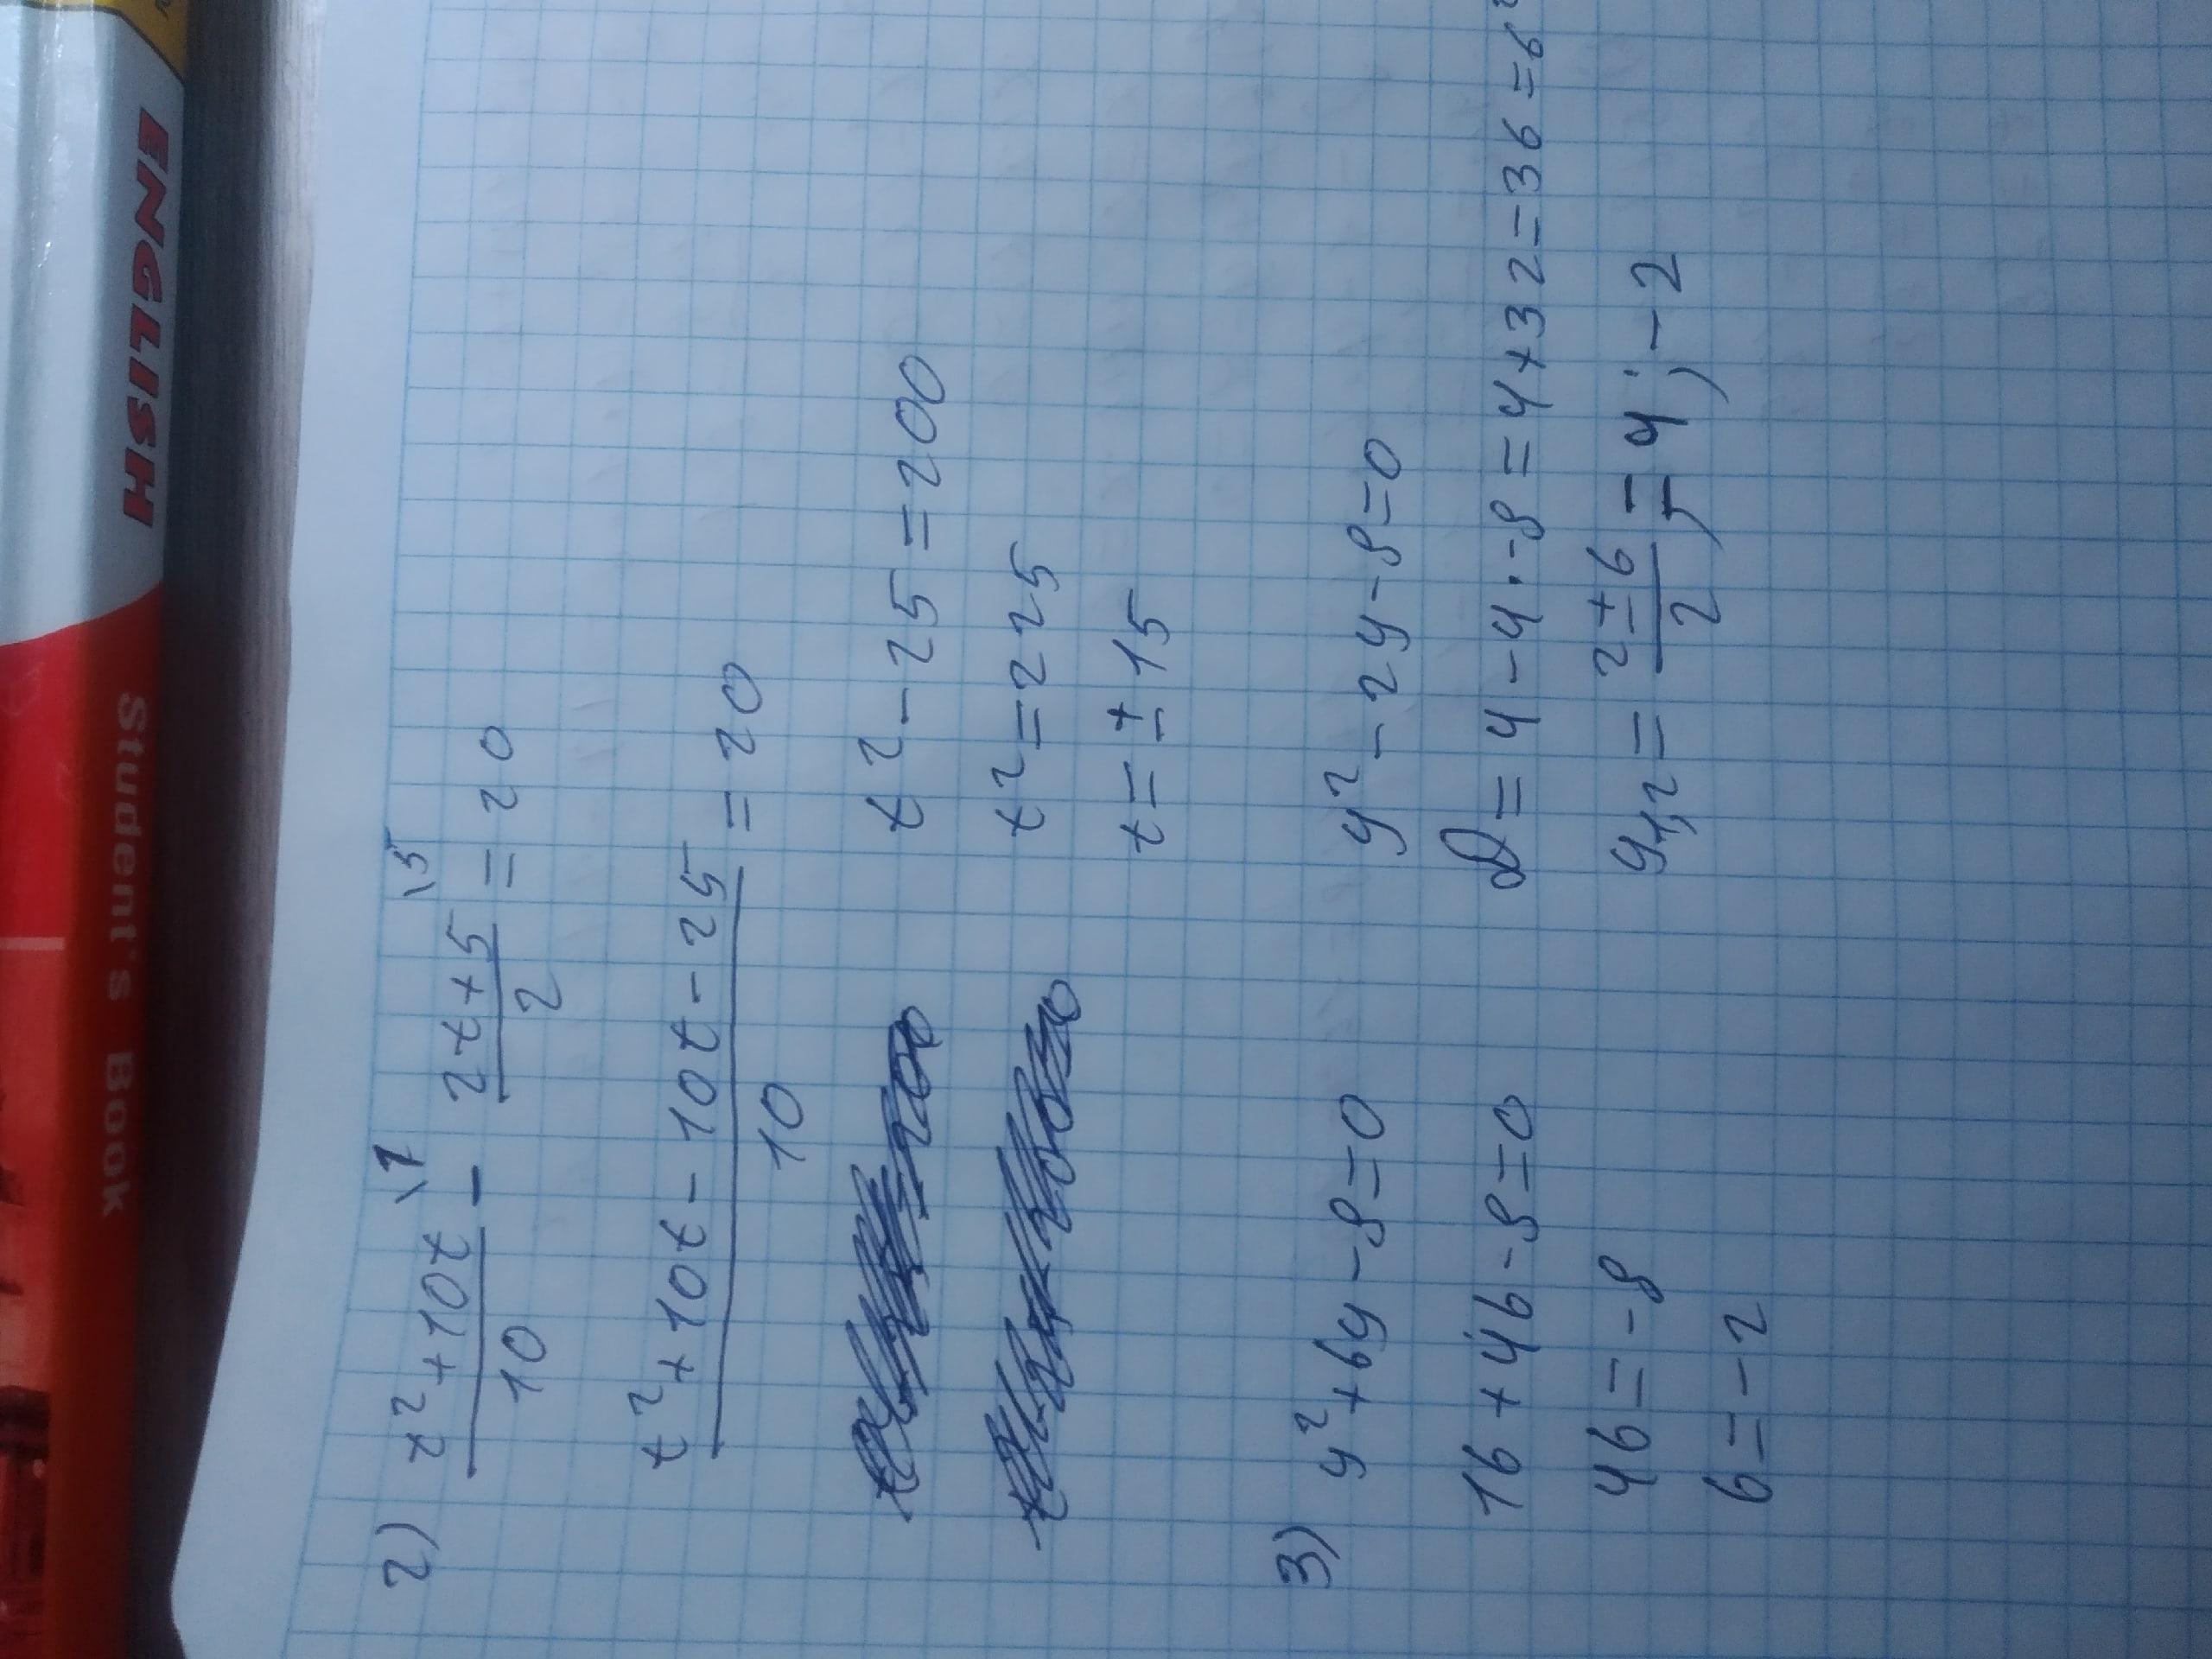 ENGLISH
Student's Book
2) (t² + 10t)/10 \1 − (2t+5)/2 \5 = 20
(t² + 10t − 10t − 25)/10 = 20
t² − 25 = 200
t² = 225
t = ± 15
3) y² + by − 8 = 0
16 + 4b − 8 = 0
4b = −8
b = −2
y² − 2y − 8 = 0
D = 4 − 4 · −8 = 4 + 32 = 36 = 6²
y1,2 = (2 ± 6)/2 = 4; −2